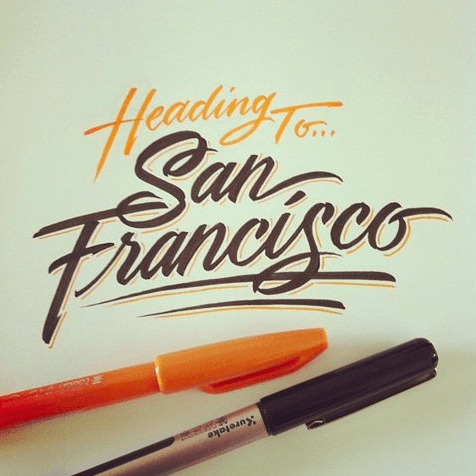 Heading To...
San
Francisco
Kuretake